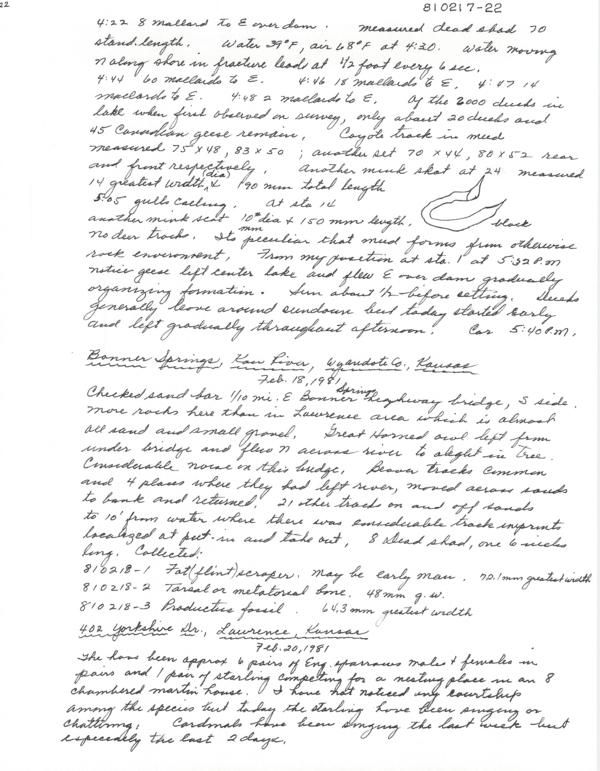 22
810217-22
4:22 8 mallard to E over dam. Measured dead shad 70
stand. length. Water 39°F, air 68°F at 4:20. Water moving
N along shore in fracture leads at 1/2 foot every 6 sec.
4:44 60 mallards to E. 4:46 18 mallards to E, 4:47 14
mallards to E. 4:48 2 mallards to E. Of the 2000 ducks in
lake when first observed on survey, only about 20 ducks and
45 Canadian geese remain. Coyote track in mud
measured 75 x 48, 83 x 50; another set 70 x 44, 80 x 52 rear
and front respectively. Another mink skat at 24 measured
14 greatest width (dia) & 190 mm total length
5:05 gulls calling. At sta 14
another mink scat 10 mm dia + 150 mm length. black
No deer tracks. Its peculiar that mud forms from otherwise
rock environment. From my position at sta. 1 at 5:32 P.m
notice geese left center lake and flew E over dam gradually
organizing formation. Sun about 1/2 before setting. Ducks
generally leave around sundown but today started early
and left gradually throughout afternoon. Car 5:40 P.M.
Bonner Springs, Kaw River, Wyandote Co., Kansas
Feb. 18, 1981
Checked sand bar 1/10 mi. E Bonner Springs highway bridge, S side.
More rocks here than in Lawrence area which is almost
all sand and small gravel. Great Horned owl left from
under bridge and flew N across river to alight in tree.
Considerable noise on this bridge. Beaver tracks common
and 4 places where they had left river, moved across sands
to bank and returned. 21 other tracks on and off sands
to 10' from water where there was considerable track imprints
localized at put-in and take out, 8 Dead shad, one 6 inches
long. Collected:
810218-1 Fat (flint) scraper. May be early man. 70.1mm greatest width
810218-2 Tarsal or metatorsal bone. 48mm g.w.
810218-3 Productus fossil. 64.3 mm greatest width
402 Yorkshire Dr., Lawrence, Kansas
Feb. 20, 1981
The have been approx 6 pairs of Eng. sparrows males & females in
pairs and 1 pair of starling competing for a nesting place in an 8
chambered martin house. I have not noticed any courtship
among the species but today the starling have been singing or
chattering. Cardinals have been singing the last week but
especially the last 2 days.